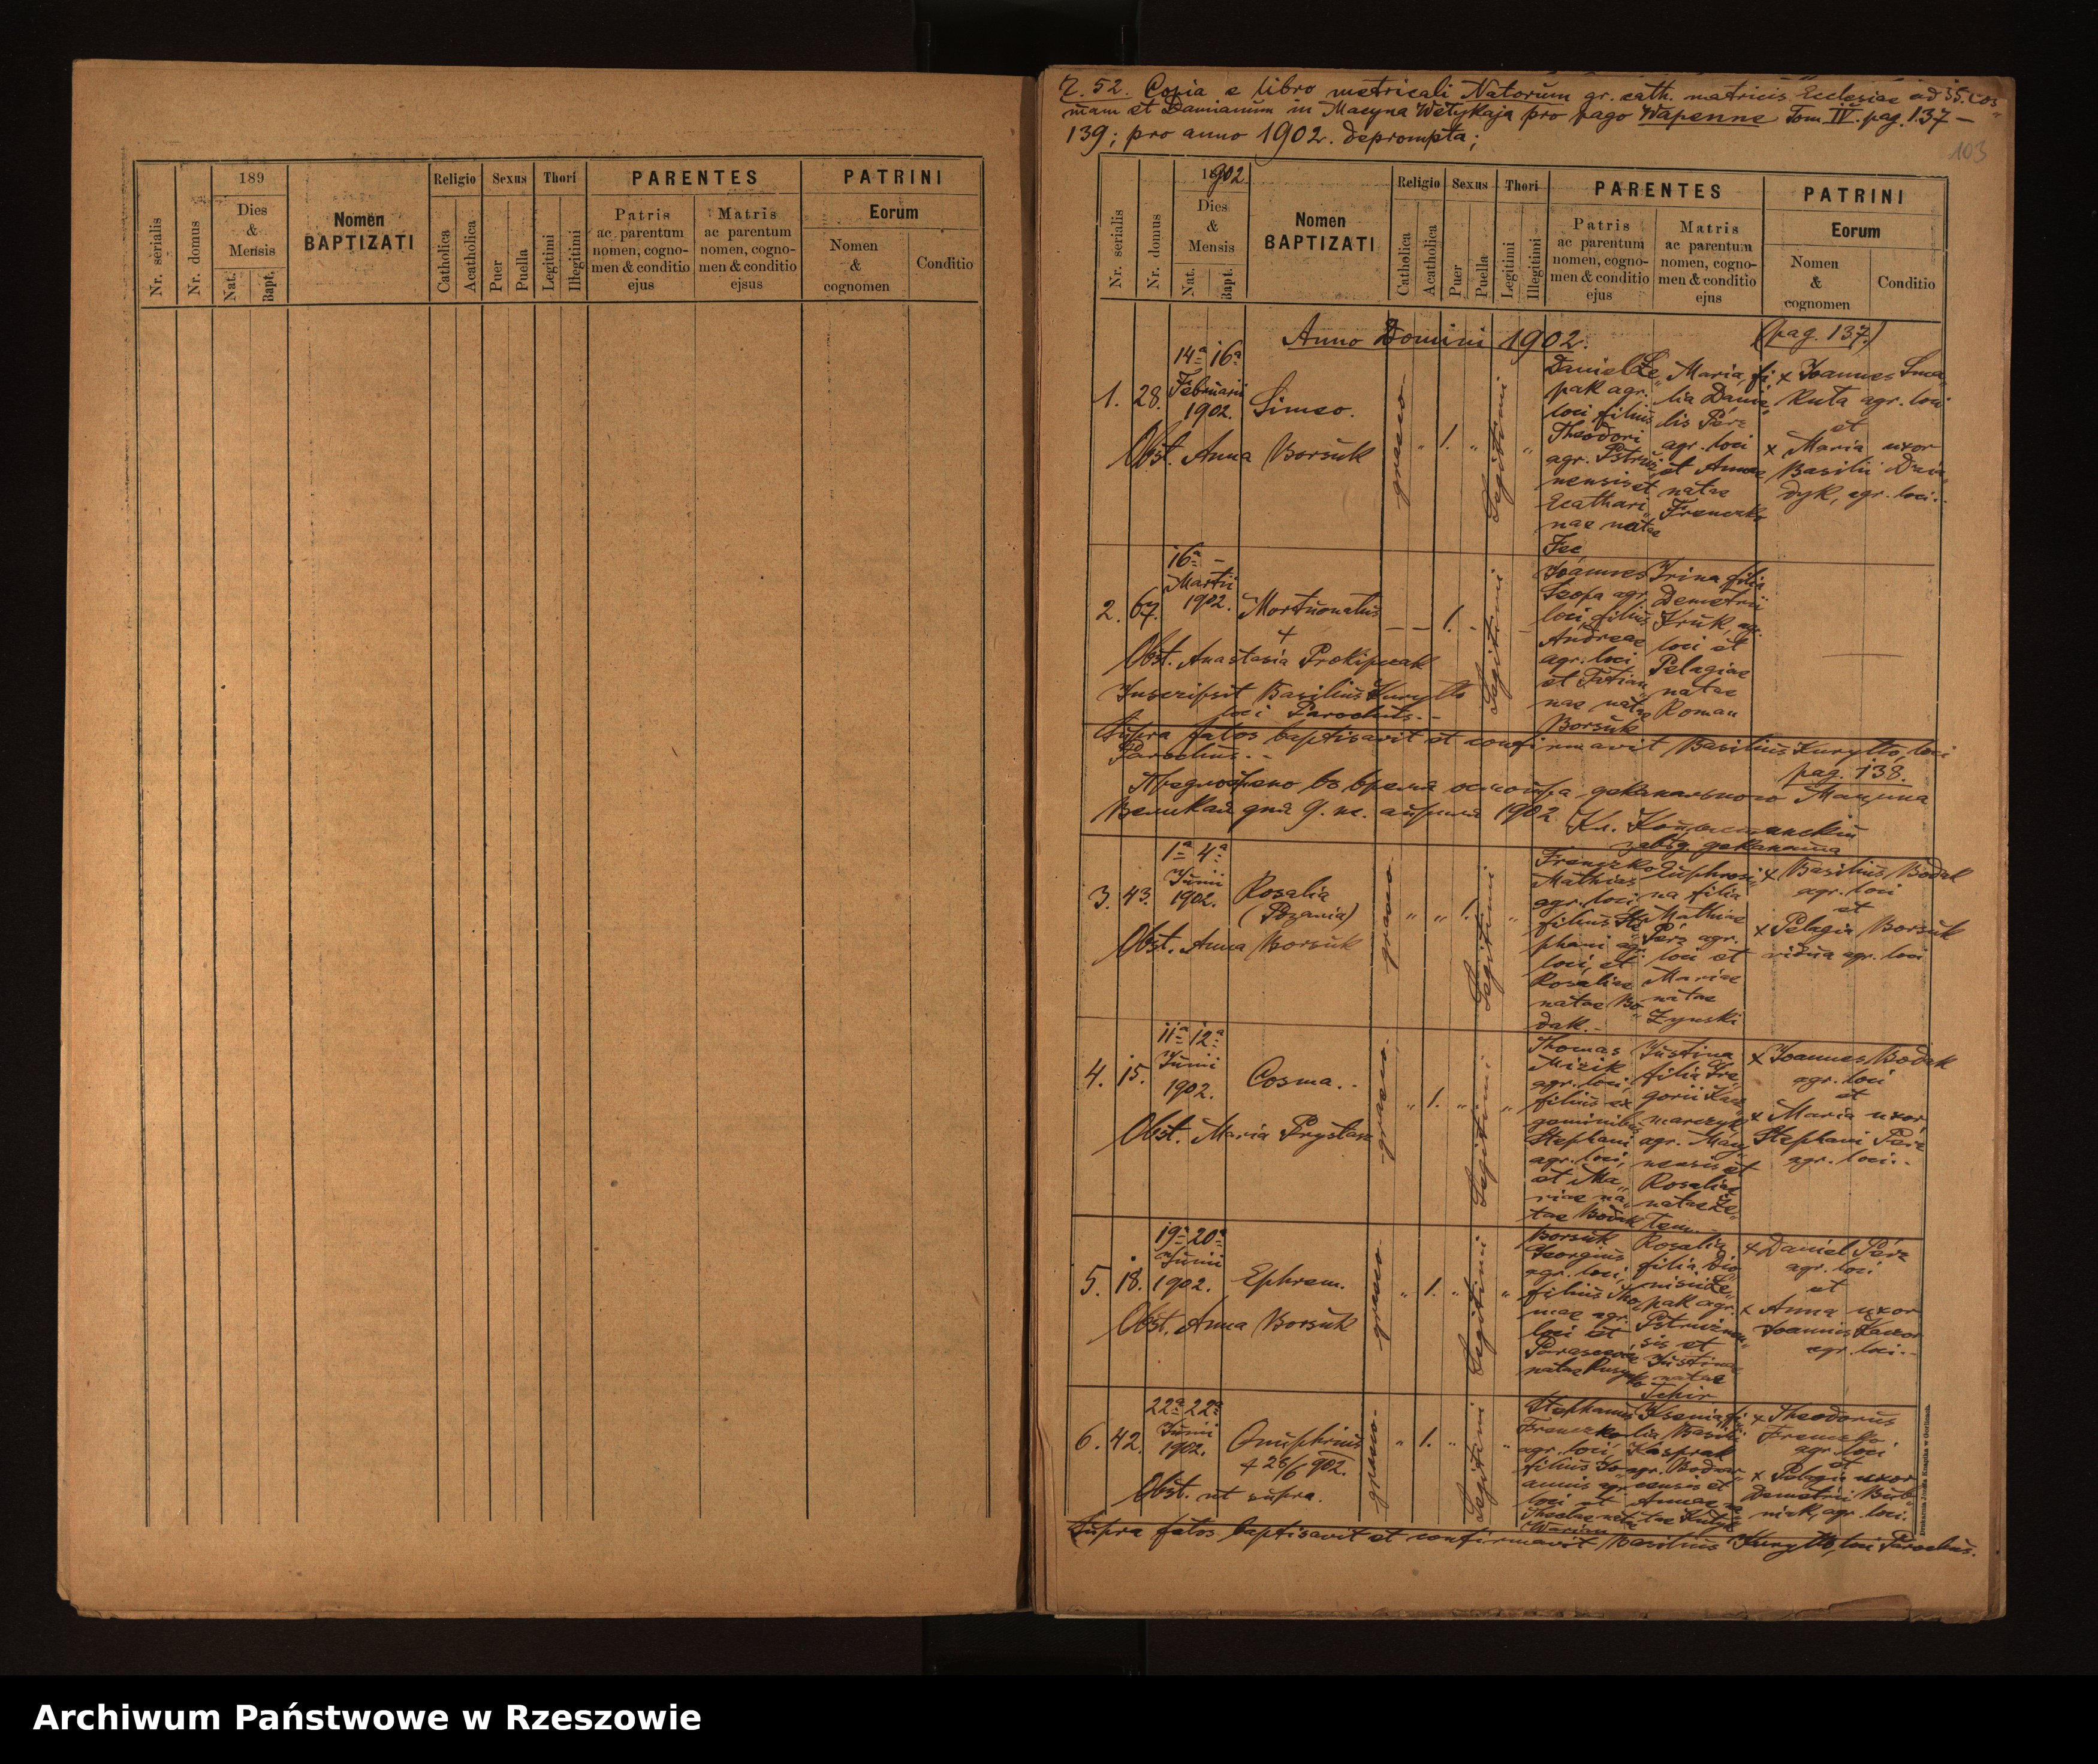 189
Nr. serialis
Nr. domus
Dies
&
Mensis
Nat.
Bapt.
Nomen
BAPTIZATI
Religio
Catholica
Acatholica
Sexus
Puer
Puella
Thori
Legitimi
Illegitimi
PARENTES
Patris
ac parentum
nomen, cogno-
men & conditio
ejus
Matris
ac parentum
nomen, cogno-
men & conditio
ejsus
PATRINI
Eorum
Nomen
&
cognomen
Conditio
Copia e libro metricali Natorum gr. cath. matricis Ecclesiae ad SS. Cos„
mam et Damianum in Macyna Wełykaja pro pago Wapenne Tom IV. pag. 137 –
139; pro anno 1902. deprompta;
103
1902
Nr. serialis
Nr. domus
Dies
&
Mensis
Nat.
Bapt.
Nomen
BAPTIZATI
Religio
Catholica
Acatholica
Sexus
Puer
Puella
Thori
Legitimi
Illegitimi
PARENTES
Patris
ac parentum
nomen, cogno-
men & conditio
ejus
Matris
ac parentum
nomen, cogno-
men & conditio
ejus
PATRINI
Eorum
Nomen
&
cognomen
Conditio
Anno Domini 1902.
(pag. 137.)
1. 28.
14ª 16ª
Februarii
1902.
Simeo.
Obst. Anna Borsuk
graeco
„ 1. „
Legitimi
„
Daniel Że„
pak agr.
loci filius
Theodori
agr. Pstruż„
nensis et
Ecathari„
nae natae
Fec
Maria, fi„
lia Danie„
lis Perz
agr. loci
et Annae
natae
Frenczko
x Joannes Sma„
Ruta agr. loci
et
x Maria uxor
Basilii Dzia„
dyk, agr. loci.
2. 67.
16ª –
Martii
1902.
Mortuonatus
+
Obst. Anastasia Prokipczak
Inscripsit Basilius Kuryłło
loci Parochus. –
– – 1. – –
Legitimi
Joannes
agr.
loci, filius
Andreae
agr. loci
et Tatian„
nae natae
Borsuk
Irina filia
Demetrii
Kruk, agr.
loci et
Pelagiae
natae
Roman
Supra fatos baptisavit et confirmavit Basilius Kuryłło, loci
Parochus. –
pag. 138.
Великая дня 9. м. 1902
3. 43.
1ª 4ª
Junii
1902.
Rosalia
(Rozania)
Obst. Anna Borsuk
graeco
„ „ 1. „
Legitimi
Frenczko
Mathias
agr. loci,
filius Ste„
phani agr.
loci, et
Rosaliae
natae Bo„
dak. –
Euphrosi„
na filia
Mathiae
Perz agr.
loci et
Mariae
natae
Żynski
x Basilius Bodak
agr. loci
et
x Pelagia Borsuk
vidua agr. loci
4. 15.
11ª 12ª
Junii
1902.
Cosma. –
Obst. Maria Prystasz
graeco
„ 1. „
Legitimi
„
Thomas
Mizik
agr. loci,
filius ex
Stephani
agr. loci,
et Ma„
riae na„
tae Bodak
Justina
filia Gre„
gorii
agr. Macy„
nensis et
Rosaliae
natae
x Joannes Bodak
agr. loci
et
x Maria uxor
Stephani Perz
agr. loci. –
5. 18.
19ª 20ª
Junii
1902.
Ephrem.
Obst. Anna Borsuk
graeco
„ 1. „
Legitimi
„
Borsuk
Georgius
agr. loci,
filius Tho„
mae agr.
loci et
Parascevae
natae
Rosalia
filia Dio„
nisii Że„
pak agr.
Pstrużnen„
sis et
Justinae
natae
x Daniel Perz
agr. loci
et
x Anna uxor
Joannis
agr. loci. –
6. 42.
22ª 22ª
Junii
1902.
Onuphrius
+ 28/6 902.
Obst. ut supra.
graeco
„ 1. „
Legitimi
„
Stephanus
Frenczko
agr. loci,
filius Jo„
annis agr.
loci et
Theclae natae
Ksenia fi„
lia Basilii
Kasprak
agr. Bodar„
nensis et
Annae na„
tae
x Theodorus
Frenczko
agr. loci
et
x Pelagia uxor
Demetrii
agr. loci.
Supra fatos baptisavit et confirmavit Basilius Kuryłło, loci Parochus.
Archiwum Państwowe w Rzeszowie